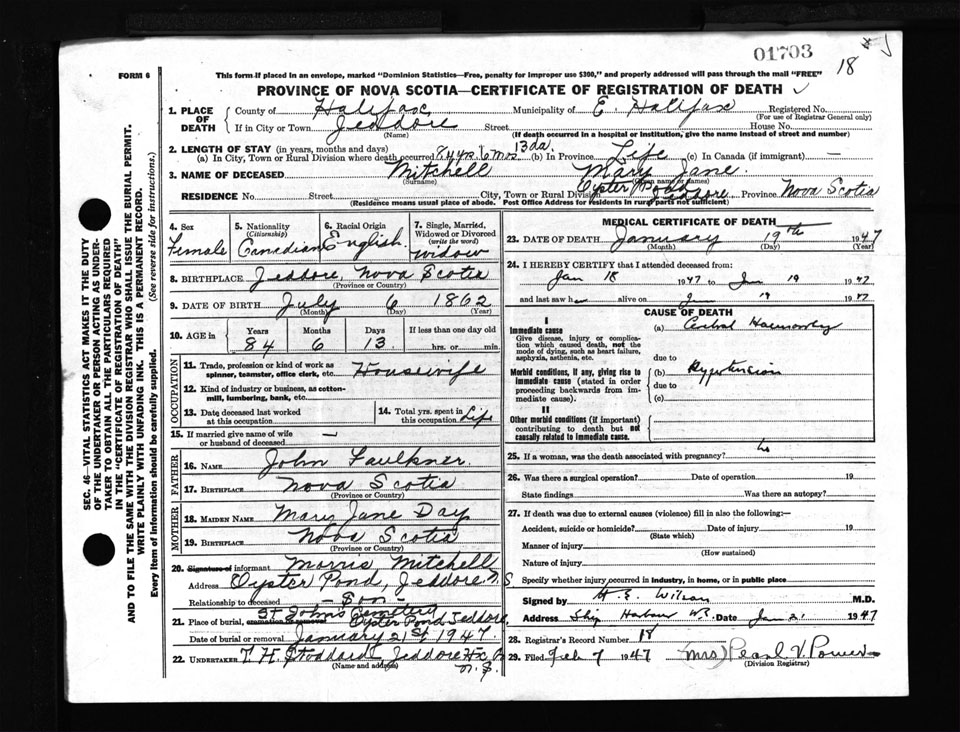 01703
18
FORM 6
This form if placed in an envelope, marked "Dominion Statistics—Free, penalty for improper use $300," and properly addressed will pass through the mail "FREE"
PROVINCE OF NOVA SCOTIA—CERTIFICATE OF REGISTRATION OF DEATH
1. PLACE OF DEATH
County of Halifax Municipality of E. Halifax Registered No.
(For use of Registrar General only)
If in City or Town Jeddore Street House No.
(Name) (If death occurred in a hospital or institution, give the name instead of street and number)
2. LENGTH OF STAY (in years, months and days) 13 da.
(a) In City, Town or Rural Division where death occurred 84 yrs. 6 mos. (b) In Province Life (c) In Canada (if immigrant) —
3. NAME OF DECEASED Mitchell Mary Jane.
(Surname) (Given name or names)
RESIDENCE No. Street City, Town or Rural Division Oyster Pond Jeddore, Province Nova Scotia
(Residence means usual place of abode. Post Office Address for residents in rural parts not sufficient)
4. Sex Female
5. Nationality (Citizenship) Canadian
6. Racial Origin English.
7. Single, Married, Widowed or Divorced (write the word) Widow
8. BIRTHPLACE Jeddore, Nova Scotia
(Province or Country)
9. DATE OF BIRTH July 6 1862
(Month) (Day) (Year)
10. AGE in Years Months Days If less than one day old
84 6 13. hrs. or min.
OCCUPATION
11. Trade, profession or kind of work as spinner, teamster, office clerk, etc. Housewife
12. Kind of industry or business, as cotton-mill, lumbering, bank, etc.
13. Date deceased last worked at this occupation
14. Total yrs. spent in this occupation Life
15. If married give name of wife or husband of deceased —
FATHER
16. NAME John Faulkner.
17. BIRTHPLACE Nova Scotia
(Province or Country)
MOTHER
18. MAIDEN NAME Mary Jane Day
19. BIRTHPLACE Nova Scotia
(Province or Country)
20. Signature of informant Morris Mitchell
Address Oyster Pond, Jeddore N S
Relationship to deceased - Son -
St. John's Cemetery
21. Place of burial, cremation or removal Oyster Pond Jeddore,
Date of burial or removal January 21st 1947.
22. UNDERTAKER T. H. Stoddard Jeddore Hx
(Name and address) N. S.
MEDICAL CERTIFICATE OF DEATH
23. DATE OF DEATH January 19th 1947
(Month) (Day) (Year)
24. I HEREBY CERTIFY that I attended deceased from:
Jan 18 1947 to Jan 19 1947
and last saw her alive on Jan 19 1947
CAUSE OF DEATH
I
Immediate cause
Give disease, injury or complication which caused death, not the mode of dying, such as heart failure, asphyxia, asthenia, etc.
(a)
due to
Morbid conditions, if any, giving rise to immediate cause (stated in order proceeding backwards from immediate cause).
(b) Hypertension
due to
(c)
II
Other morbid conditions (if important) contributing to death but not causally related to immediate cause.
25. If a woman, was the death associated with pregnancy? no
26. Was there a surgical operation? Date of operation 19
State findings Was there an autopsy?
27. If death was due to external causes (violence) fill in also the following:—
Accident, suicide or homicide? Date of injury 19
(State which)
Manner of injury
(How sustained)
Nature of injury
Specify whether injury occurred in industry, in home, or in public place
Signed by H. E. Wilson M.D.
Address Ship Harbour N.S. Date Jan 21 1947
28. Registrar's Record Number 18
29. Filed Feb 7 1947 (Mrs) Pearl V. Power
(Division Registrar)
SEC. 46—VITAL STATISTICS ACT MAKES IT THE DUTY
OF THE UNDERTAKER OR PERSON ACTING AS UNDER-
TAKER TO OBTAIN ALL THE PARTICULARS REQUIRED
IN THE "CERTIFICATE OF REGISTRATION OF DEATH"
AND TO FILE THE SAME WITH THE DIVISION REGISTRAR WHO SHALL ISSUE THE BURIAL PERMIT.
WRITE PLAINLY WITH UNFADING INK. THIS IS A PERMANENT RECORD.
Every item of Information should be carefully supplied. (See reverse side for instructions.)